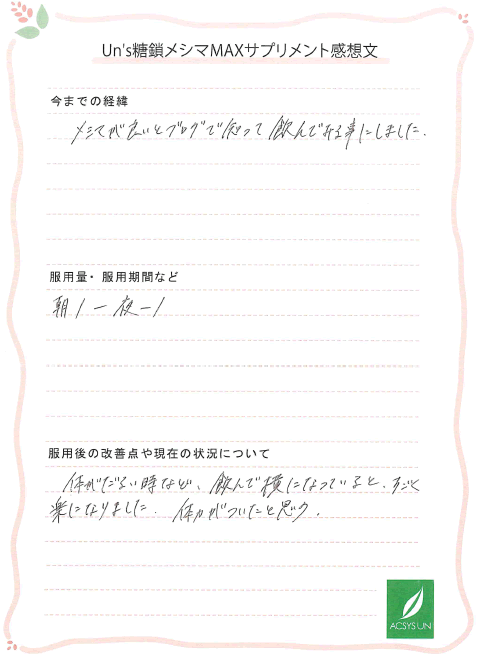 Un's糖鎖メシマMAXサプリメント感想文
今までの経緯
メシマが良いとブログで知って飲んでみる事にしました.
服用量・服用期間など
朝1ー夜ー1
服用後の改善点や現在の状況について
体がだるい時など、飲んで横になっていると、すごく
楽になりました. 体力がついたと思う.
ACSYS UN